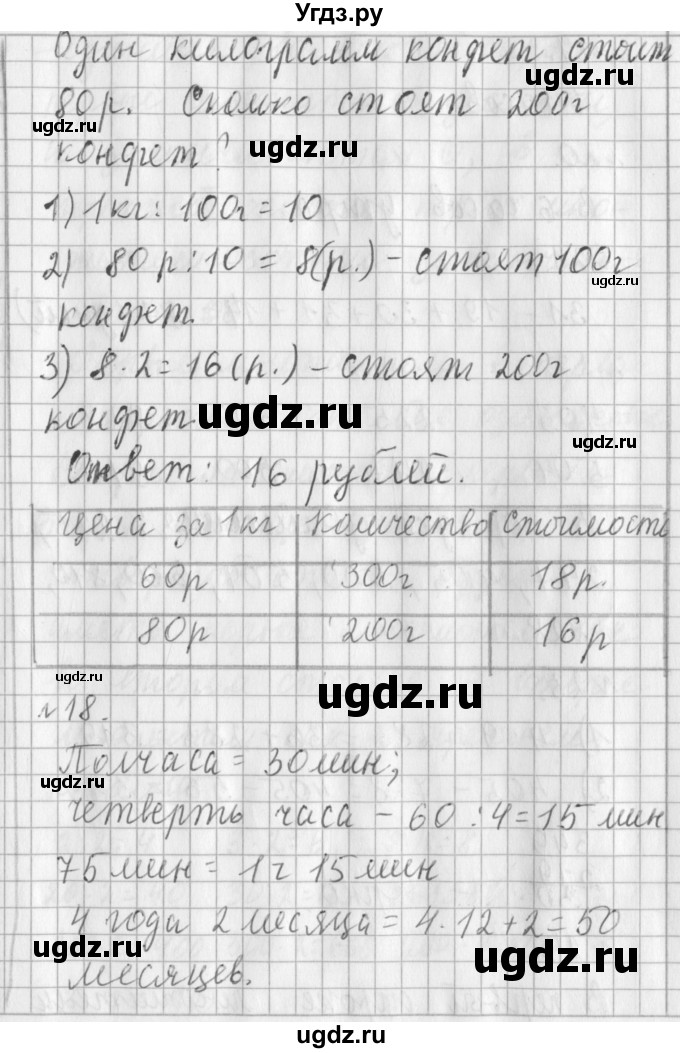 Угдз.ру
Один килограмм конфет стоит
ugdz.ru
80р. Сколько стоят 200г
ugdz.ru
конфет?
ugdz.ru
1) 1кг : 100г = 10
2) 80р : 10 = 8(р.) - стоят 100г
ugdz.ru
конфет.
3) 8 · 2 = 16(р.) - стоят 200г
конфет.
ugdz.ru
ugdz.ru
Ответ: 16 рублей.
Цена за 1кг Количество Стоимость
60р 300г 18р.
80р 200г 16р
ugdz.ru
ugdz.ru
№18.
Полчаса = 30мин;
ugdz.ru
четверть часа - 60 : 4 = 15 мин
75мин = 1ч 15мин
4 года 2 месяца = 4 · 12 + 2 = 50
ugdz.ru
ugdz.ru
месяцев.
ugdz.ru